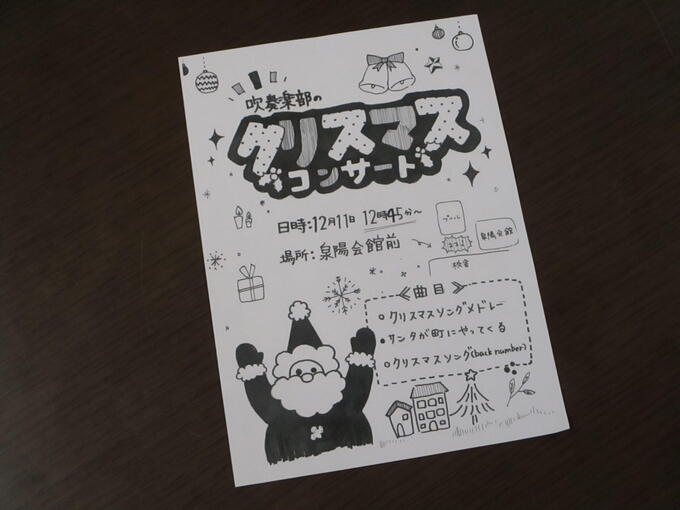 吹奏楽部の
クリスマス
コンサート
日時:12月11日 12時45分〜
場所:泉陽会館前
プール
ココ!
泉陽会館
校舎
曲目
クリスマスソングメドレー
サンタが町にやってくる
クリスマスソング(back number)